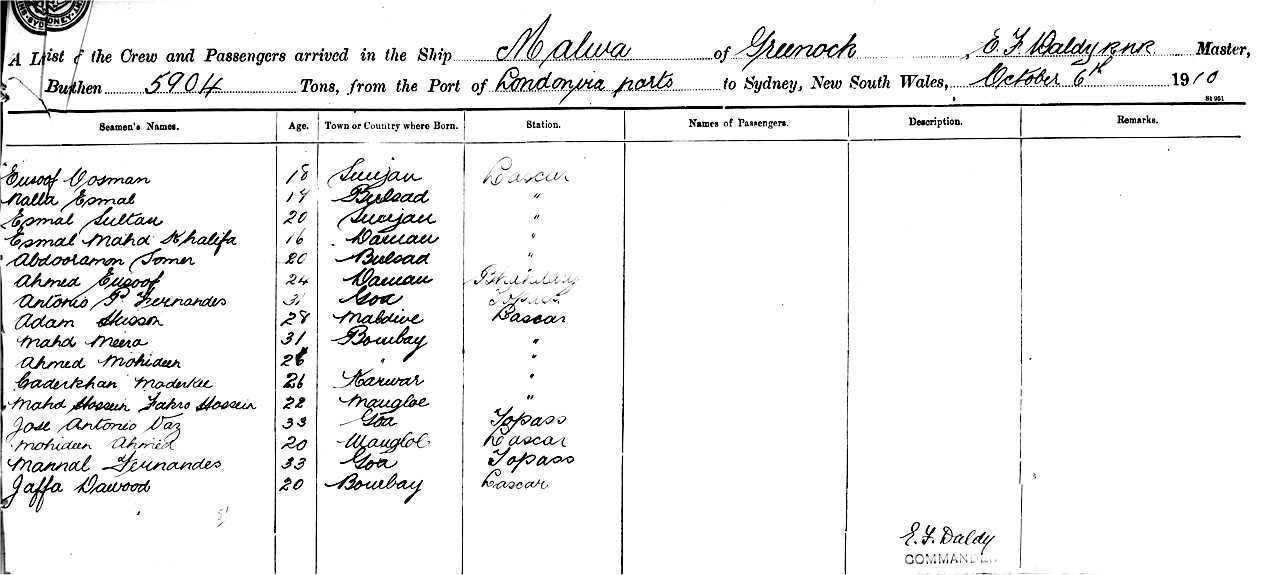 SYDNEY
A List of the Crew and Passengers arrived in the Ship Malwa of Greenock E. F. Daldy RNR Master,
Burthen 5904 Tons, from the Port of London via ports to Sydney, New South Wales, October 6th 1910
St 951
Seamen's Names. Age. Town or Country where Born. Station. Names of Passengers. Description. Remarks.
Eusoof Oosman 18 Surijan Lascar
Nalla Esmal 19 Bulsad "
Esmal Sultan 20 Surijan "
Esmal Mahd Khalifa 16 Daman "
Abdooramon Somer 20 Bulsad "
Ahmed Eusoof 24 Daman Bhandary
Antonio P. Fernandes 31 Goa Topass
Adam Hisson 28 Maldive Lascar
Mahd Meera 31 Bombay "
Ahmed Mohideen 26 " "
Caderkhan Maderkee 26 Karwar "
Mahd Hossein Fakro Hossein 22 Mangloe "
Jose Antonio Vaz 33 Goa Topass
Mohideen Ahmed 20 Manglol Lascar
Mannal Fernandes 33 Goa Topass
Jaffa Dawood 20 Bombay Lascar
E. F. Daldy
COMMANDER